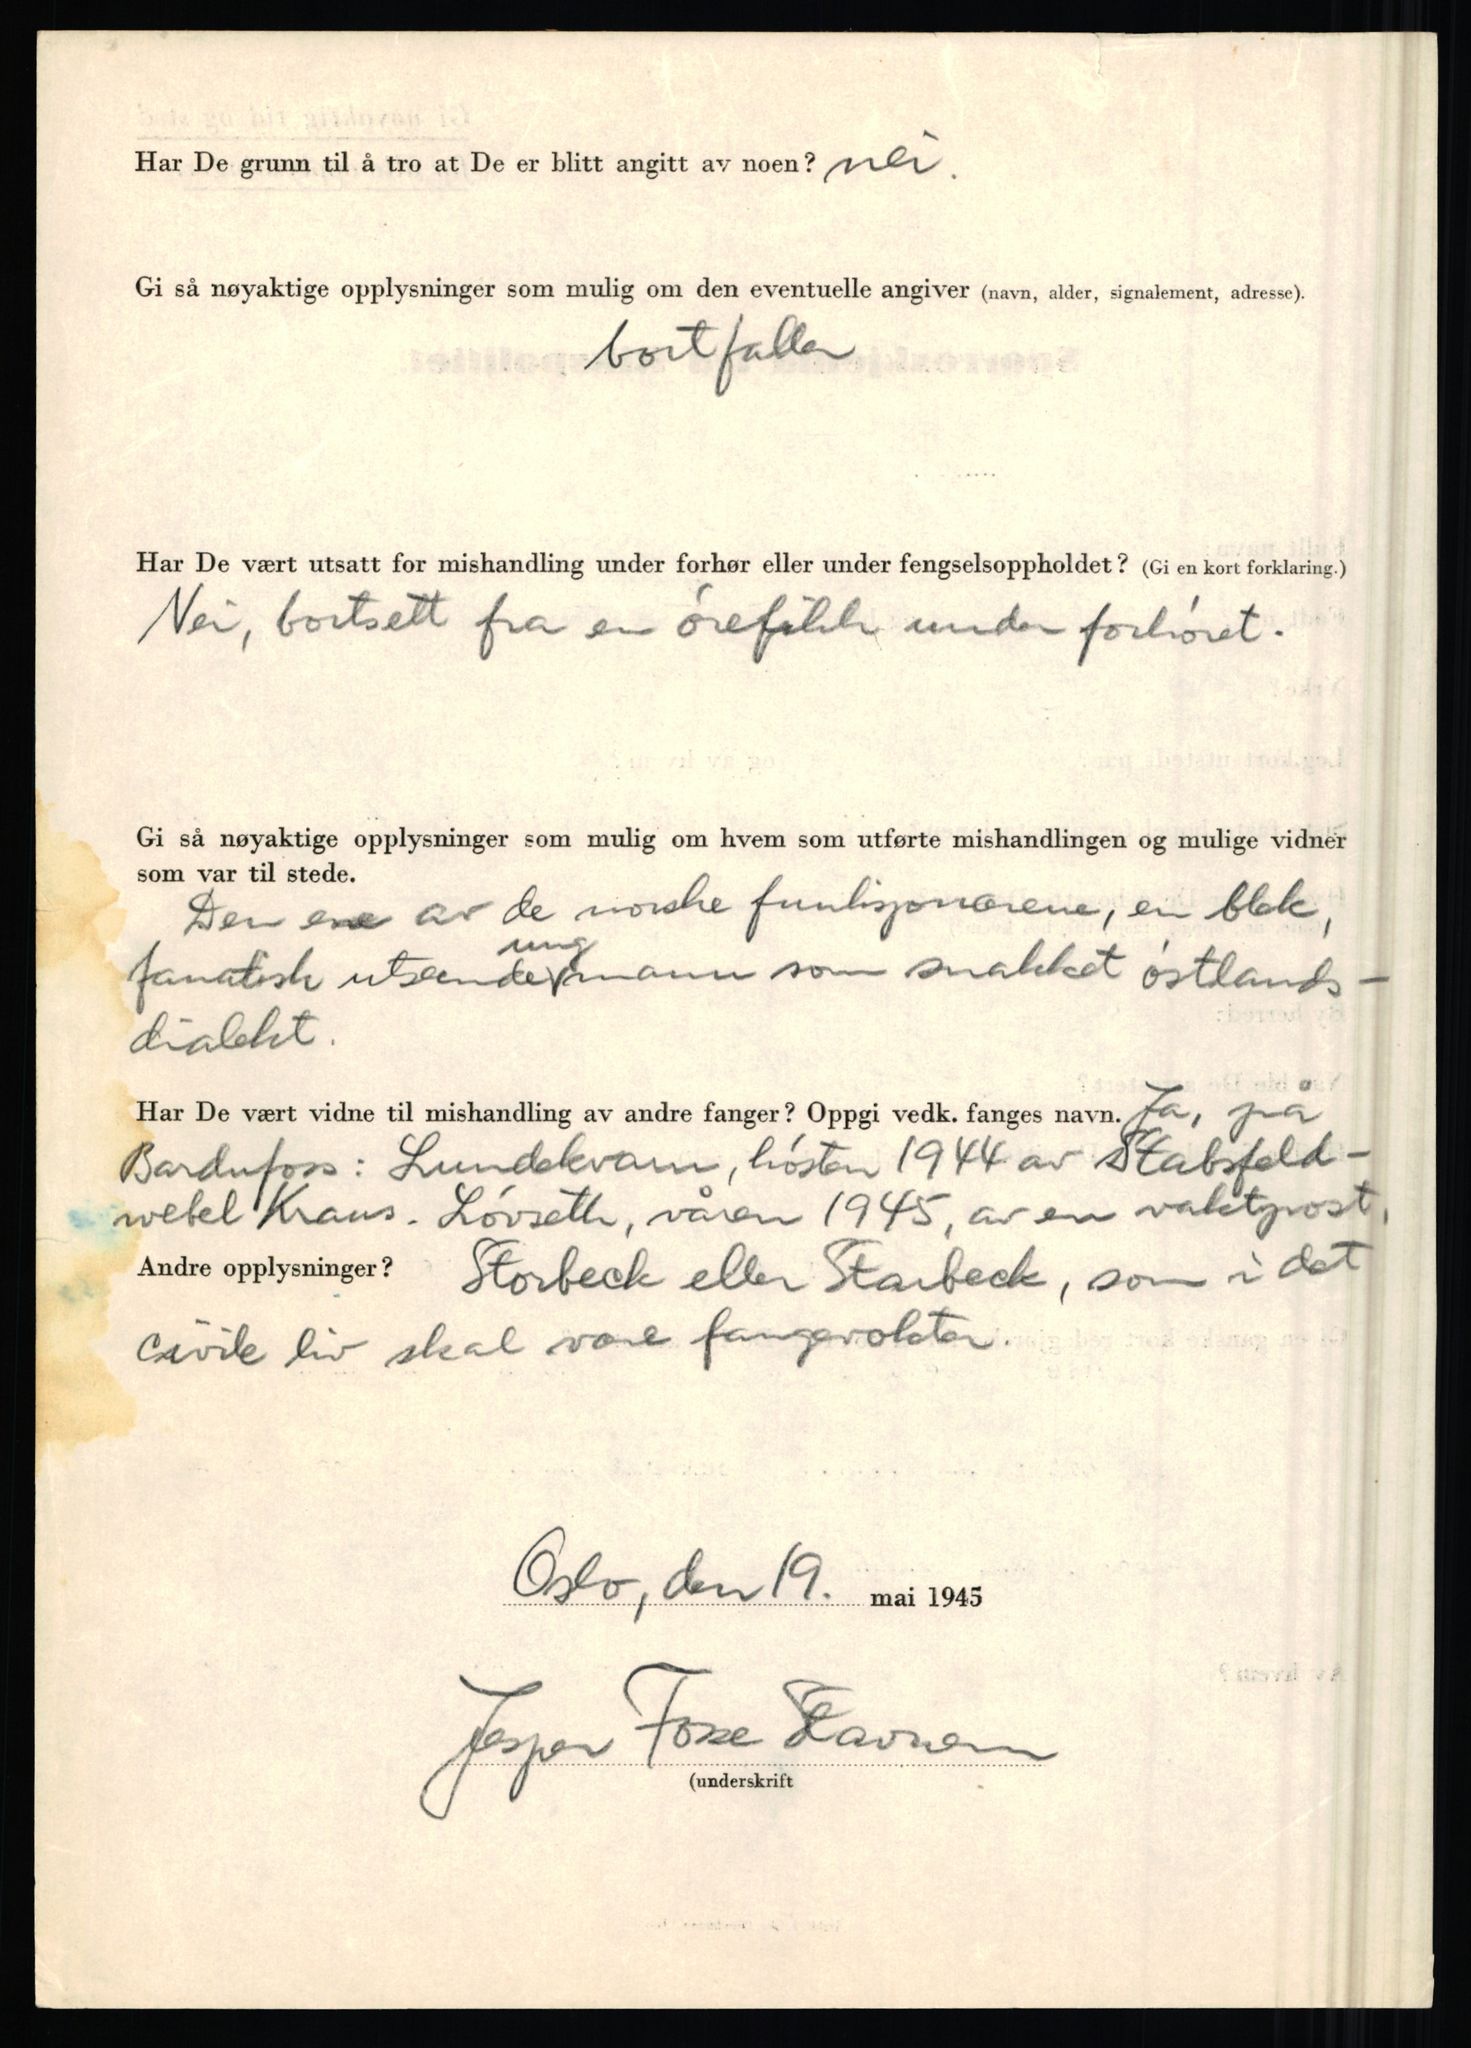 Har De grunn til å tro at De er blitt angitt av noen? nei.
Gi så nøyaktige opplysninger som mulig om den eventuelle angiver (navn, alder, signalement, adresse).
bortfaller
Har De vært utsatt for mishandling under forhør eller under fengselsoppholdet? (Gi en kort forklaring.)
Nei, bortsett fra en ørefikk under forhøret.
Gi så nøyaktige opplysninger som mulig om hvem som utførte mishandlingen og mulige vidner
som var til stede.
Den ene av de norske funksjonærene, en blek,
ung
fanatisk utseende mann som snakket østlands-
dialekt.
Har De vært vidne til mishandling av andre fanger? Oppgi vedk. fanges navn. Ja, på
Bardufoss: Lundekvam, høsten 1944 av Stabsfeld-
webel Kraus. Løvseth, våren 1945, av en vaktpost,
Andre opplysninger? Storbeck eller Starbeck, som i det
civile liv skal være fangevokter.
Oslo, den 19. mai 1945
Jesper Fosse Stavnem
(underskrift